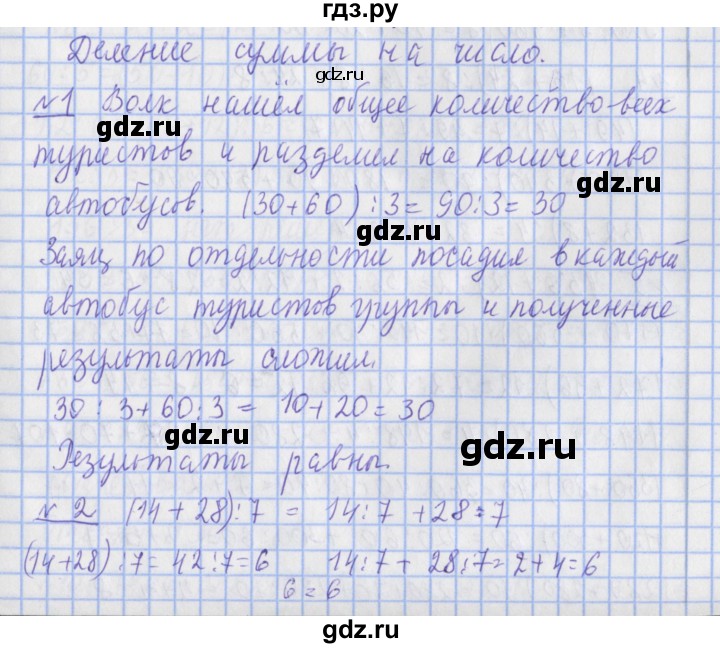 гдз.ру
Деление суммы на число.
gdz.ru
№1 Волк нашёл общее количество всех
gdz.ru
туристов и разделил на количество
gdz.ru
автобусов. (30+60):3=90:3=30
gdz.ru
Заяц по отдельности посадил в каждый
автобус туристов группы и полученные
gdz.ru
результаты сложил.
30:3+60:3= 10+20=30
gdz.ru
gdz.ru
Результаты равны.
№2 (14+28):7 = 14:7 +28:7
gdz.ru
(14+28):7=42:7=6 14:7+28:7=2+4=6
6=6
gdz.ru